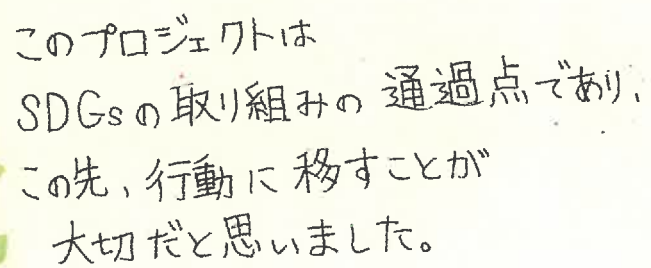 このプロジェクトは
SDGsの取り組みの通過点であり、
この先、行動に移すことが
大切だと思いました。